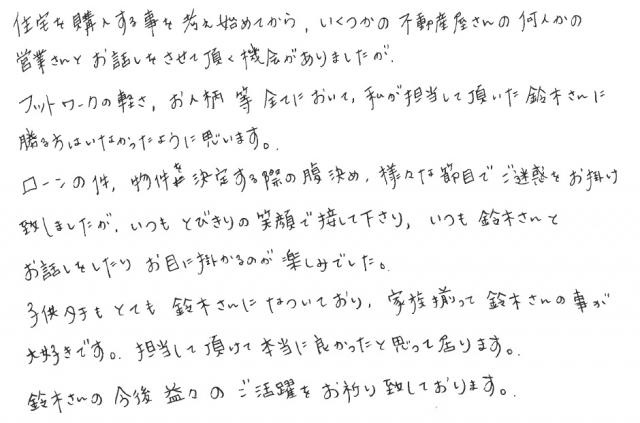 住宅を購入する事を考え始めてから、いくつかの不動産屋さんの何人かの
営業さんとお話しをさせて頂く機会がありましたが、
フットワークの軽さ、お人柄 等 全てにおいて、私が担当して頂いた鈴木さんに
勝る方はいなかったように思います。
ローンの件、物件を決定する際の腹決め、様々な節目でご迷惑をお掛け
致しましたが、いつもとびきりの笑顔で接して下さり、いつも鈴木さんと
お話しをしたりお目に掛かるのが楽しみでした。
子供タチもとても鈴木さんになついており、家族揃って鈴木さんの事が
大好きです。担当して頂けて本当に良かったと思って居ります。
鈴木さんの今後益々のご活躍をお祈り致しております。